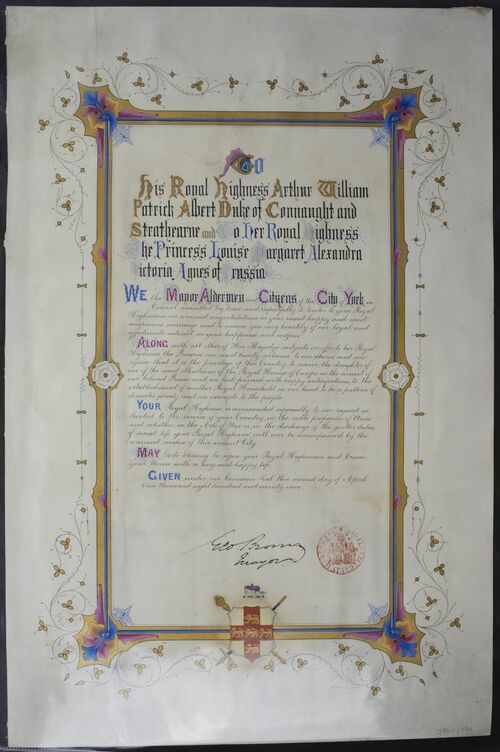 To
His Royal Highness Arthur William
Patrick Albert Duke of Connaught and
Strathearne and To Her Royal Highness
The Princess Louise Margaret Alexandra
Victoria Agnes of Prussia
WE the Mayor Aldermen and Citizens of the City of York in
Council assembled beg leave most respectfully to tender to your Royal
Highnesses our warmest congratulations on your recent happy and most
auspicious marriage and to assure you very heartily of our loyal and
affectionate interest in your happiness and welfare
ALONG with all other of Her Majestys subjects we offer to her Royal
Highness the Princess our most hearty welcome to our shores and we
rejoice that it is the privilege of this Country to receive the daughter of
one of the most illustrious of the Royal Houses of Europe as the consort of
our beloved Prince and we look forward with happy anticipations to the
establishment of another Royal Household in our land to be a pattern of
domestic felicity and an example to the people
YOUR Royal Highness is commended especially to our regard as
devoted to the service of your Country in the noble profession of Arms
and whether in the Arts of War or in the discharge of the quieter duties
of social life your Royal Highness will ever be accompanied by the
warmest wishes of this ancient City
MAY Gods blessing be upon your Royal Highnesses and crown
your Union with a long and happy life
GIVEN under our Common Seal this second day of April
One thousand eight hundred and seventy nine
Geo Brown
Mayor